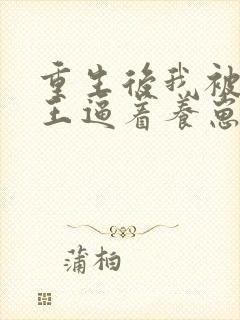 重生後我被
王逼着養崽
蒲柏